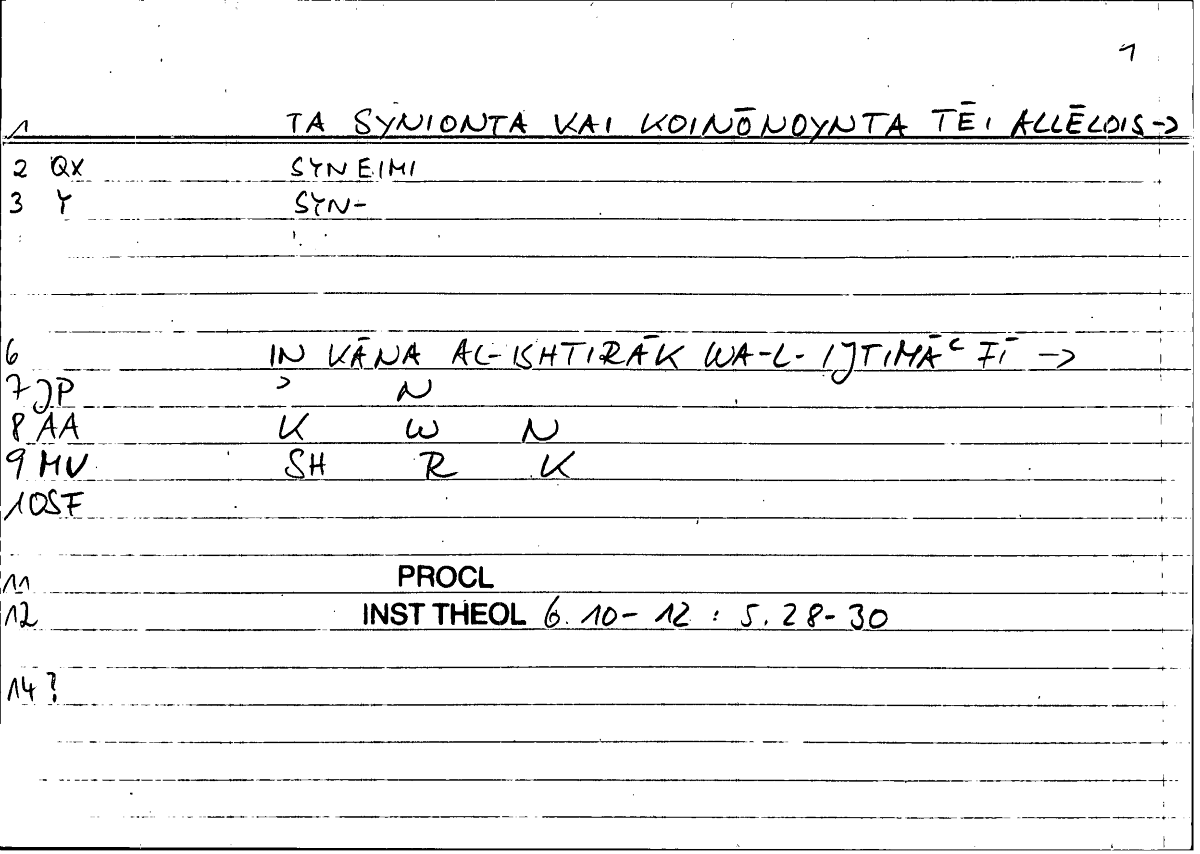 1
1 TA SYNIONTA KAI KOINŌNOYNTA TĒI ALLĒLOIS →
2 QX SYNEIMI
3 Y SYN-
6 IN KĀNA AL-ISHTIRĀK WA-L-IJTIMĀʿ FĪ →
7 JP ʾ N
8 AA K W N
9 MV SH R K
10 SF
11 PROCL
12 INST THEOL 6.10-12 : 5.28-30
14 ?